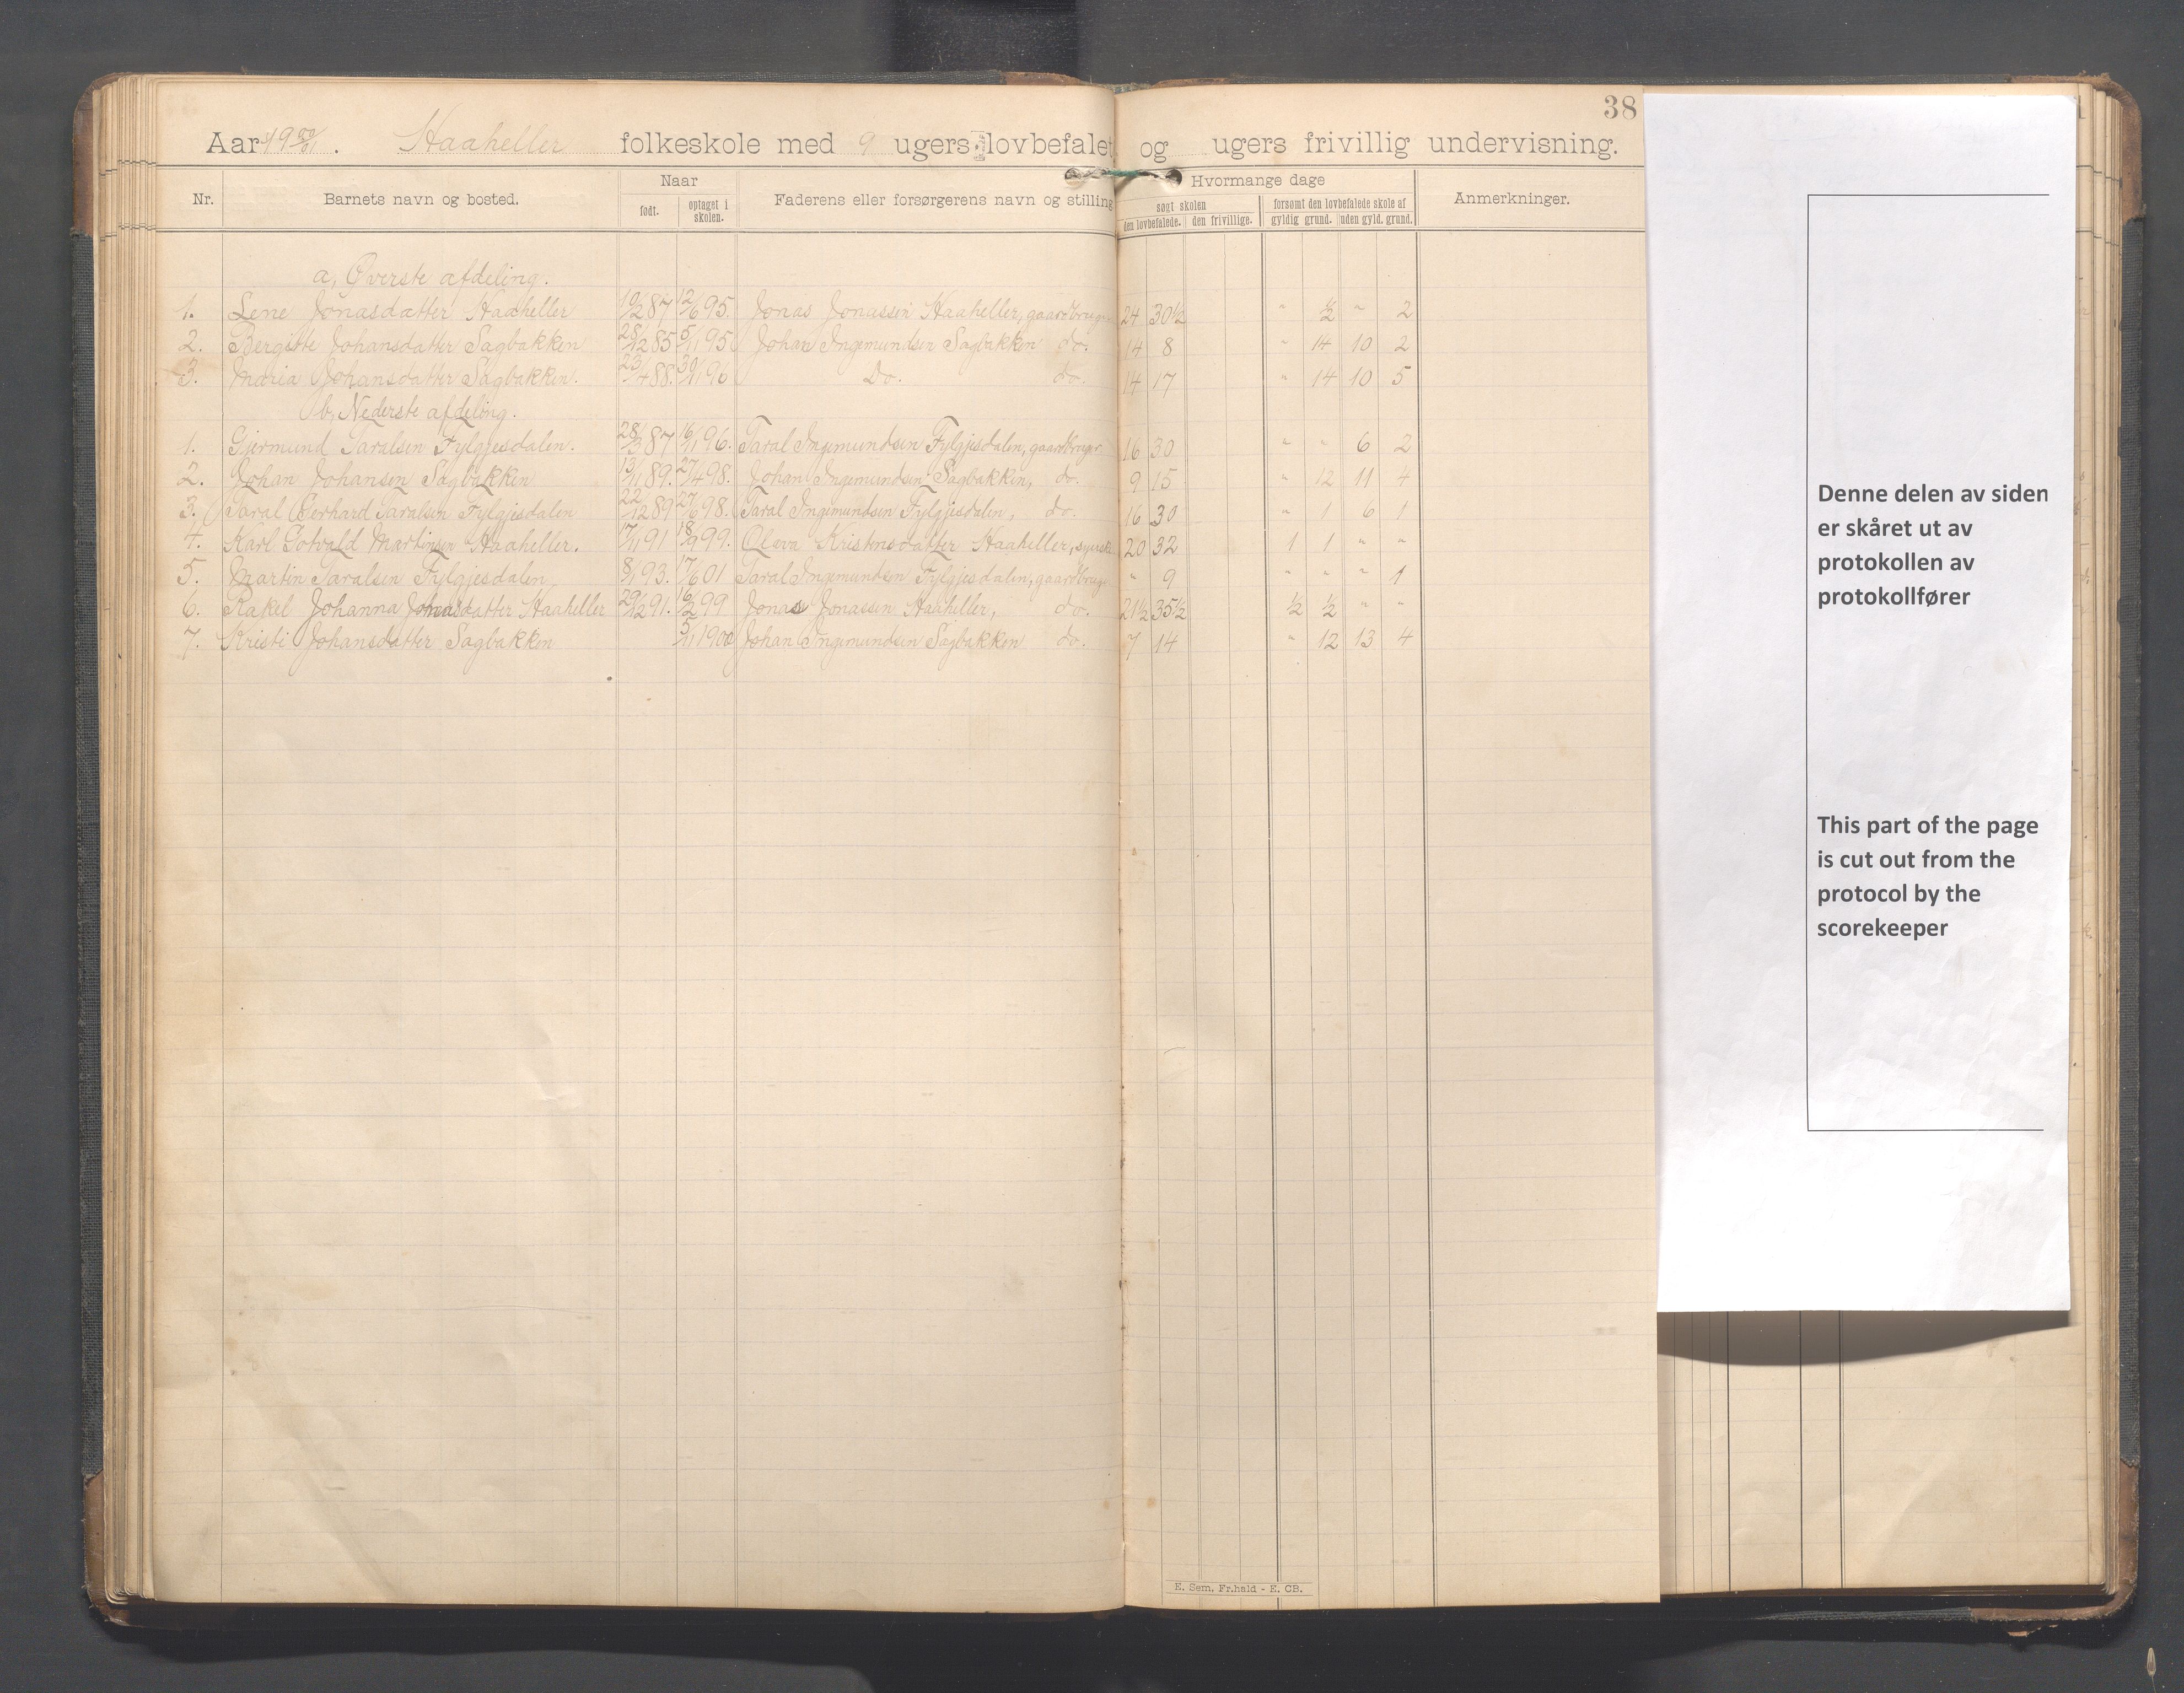 38
Aar 19 00/01. Haaheller folkeskole med 9 ugers lovbefalet og ugers frivillig undervisning.
Nr. Barnets navn og bosted. Naar Faderens eller forsørgerens navn og stilling Hvormange dage Anmerkninger.
født. optaget i skolen. søgt skolen forsømt den lovbefalede skole af
den lovbefalede. den frivillige. gyldig grund. uden gyld. grund.
a, Øverste afdeling.
1. Lene Jonasdatter Haaheller 19/2 87 12/6 95. Jonas Jonassen Haaheller, gaardbruger 24 30½ " ½ " 2
2. Bergitte Johansdatter Sagbakken 28/12 85 5/11 95 Johan Ingemundsen Sagbakken do. 14 8 " 14 10 2
3. Maria Johansdatter Sagbakken. 23/4 88. 30/11 96 Do. do. 14 17 " 14 10 5
b, Nederste afdeling.
1. Gjermund Taralsen Fylgjesdalen. 28/3 87 16/11 96. Taral Ingemundsen Fylgjesdalen, gaardbruger 16 30 " " 6 2
2. Johan Johansen Sagbakken 13/11 89. 27/4 98. Johan Ingemundsen Sagbakken, do. 9 15 " 12 11 4
3. Taral Gerhard Taralsen Fylgjesdalen 22/12 89 27/6 98. Taral Ingemundsen Fylgjesdalen, do. 16 30 " 1 6 1
4. Karl Gotvald Martinsen Haaheller. 17/11 91 18/9 99. Olava Kristensdatter Haaheller, 20 32 1 1 " "
5. Martin Taralsen Fylgjesdalen 8/1 93. 17/6 01 Taral Ingemundsen Fylgjesdalen, gaardbruger " 9 " " " 1
6. Rakel Johanna Jonasdatter Haaheller 29/12 91. 16/2 99 Jonas Jonassen Haaheller, do. 21½ 35½ ½ ½ " "
7. Kristi Johansdatter Sagbakken 5/11 1900 Johan Ingemundsen Sagbakken do. 7 14 " 12 13 4
E. Sem. Fr.hald - E. CB.
Denne delen av siden
er skåret ut av
protokollen av
protokollfører
This part of the page
is cut out from the
protocol by the
scorekeeper